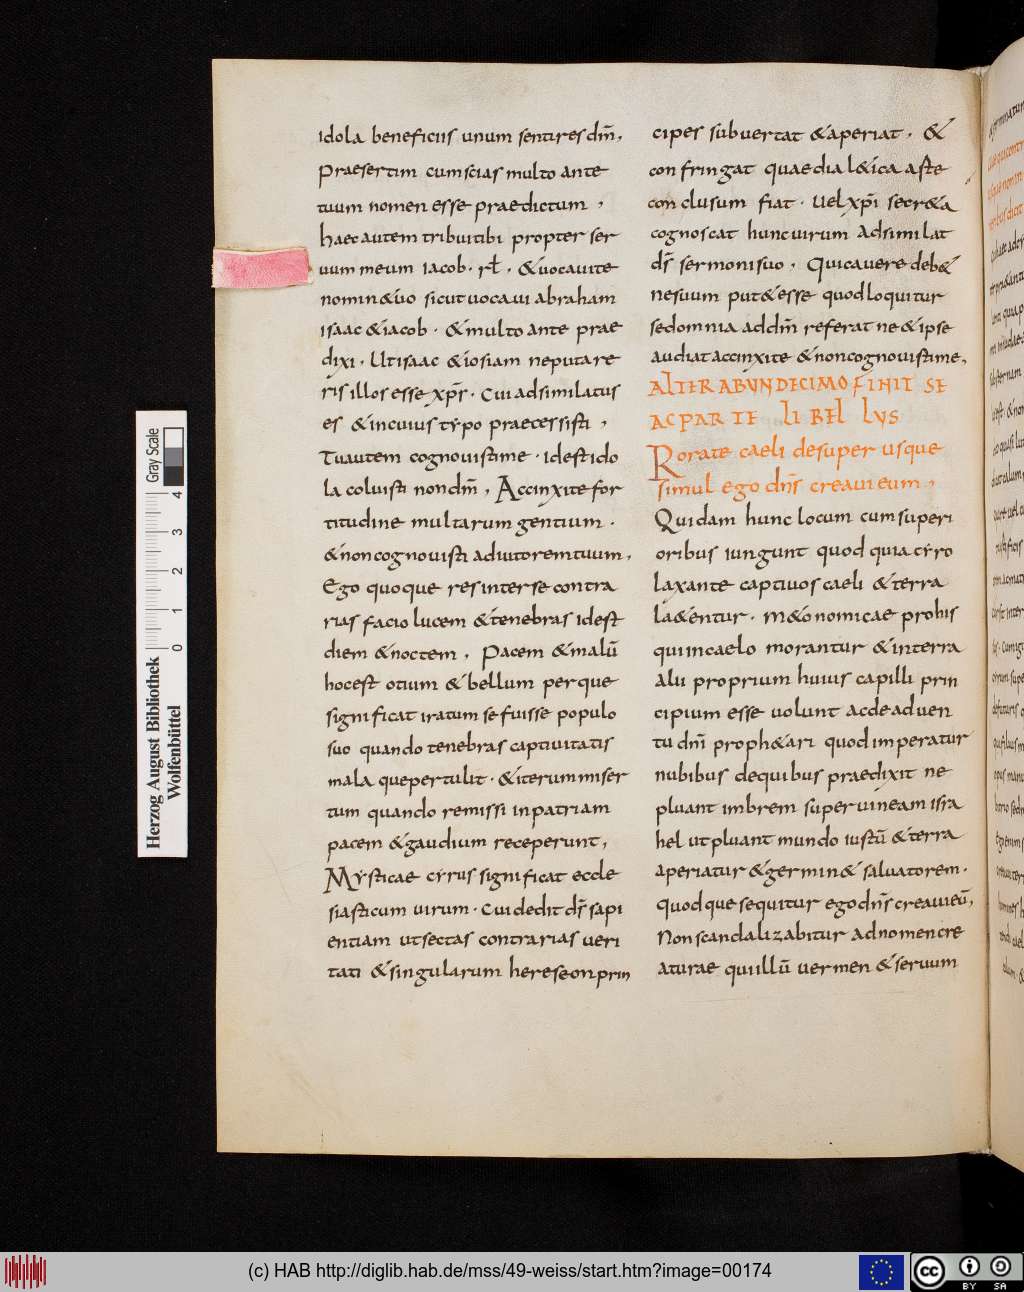 idola beneficiis unum sentires dm̄,
Praesertim cum scias multo ante
tuum nomen esse praedictum,
haec autem tribui tibi propter ser
uum meum iacob · rł · & uocaui te
nomin& uo sicut uocaui abraham
isaac & iacob · & multo ante prae
dixi · Ut isaac & iosiam ne putare
ris illos esse xpr̄ · Cui adsimilatus
es & in cuius typo praecessisti,
Tu autem cognouisti me · id est ido
la coluisti non dm̄, Accinxi te for
titudine multarum gentium ·
& non cognouisti adiutorem tuum,
Ego quoque res inter se contra
rias facio lucem & tenebras id est
diem & noctem, Pacem & malū
hoc est otium & bellum per que
significat iratum se fuisse populo
suo quando tenebras captiuitatis
mala que pertulit · & iterum miser
tum quando remissi in patriam
pacem & gaudium receperunt,
Mysticae cyrus significat eccle
siasticum uirum · Cui dedit ds̄ sapi
entiam ut sectas contrarias ueri
tati & singularum hereseon prin
cipes subuertat & aperiat, &
confringat quae dial&ica aste
conclusum fiat · Uel xpī secr&a
cognoscat hunc uirum adsimilat
ds̄ sermoni suo, Qui cauere deb&
ne suum put& esse quod loquitur
sed omnia ad dm̄ referat ne & ipse
audiat accinxi te & non cognouisti me,
ALTER AB UNDECIMO FINIT SE
AC PARTE LIBELLUS
Rorate caeli desuper usque
simul ego dns̄ creaui eum,
Quidam hunc locum cum superi
oribus iungunt quod quia cyro
laxante captiuos caeli & terra
la&entur · M&onomicae pro his
qui in caelo morantur & in terra
alii proprium huius capilli prin
cipium esse uolunt ac de aduen
tu dnī proph&ari quod imperatur
nubibus de quibus praedixit ne
pluant imbrem super uineam isra
hel ut pluant mundo iustū & terra
aperiatur & germin& saluatorem ·
quod que sequitur ego dns̄ creaui eū,
Non scandalizabitur ad nomen cre
aturae qui illū uermen & seruum
Herzog August Bibliothek
Wolfenbüttel
Gray Scale
0 1 2 3 4
(c) HAB http://diglib.hab.de/mss/49-weiss/start.htm?image=00174
cc
BY SA